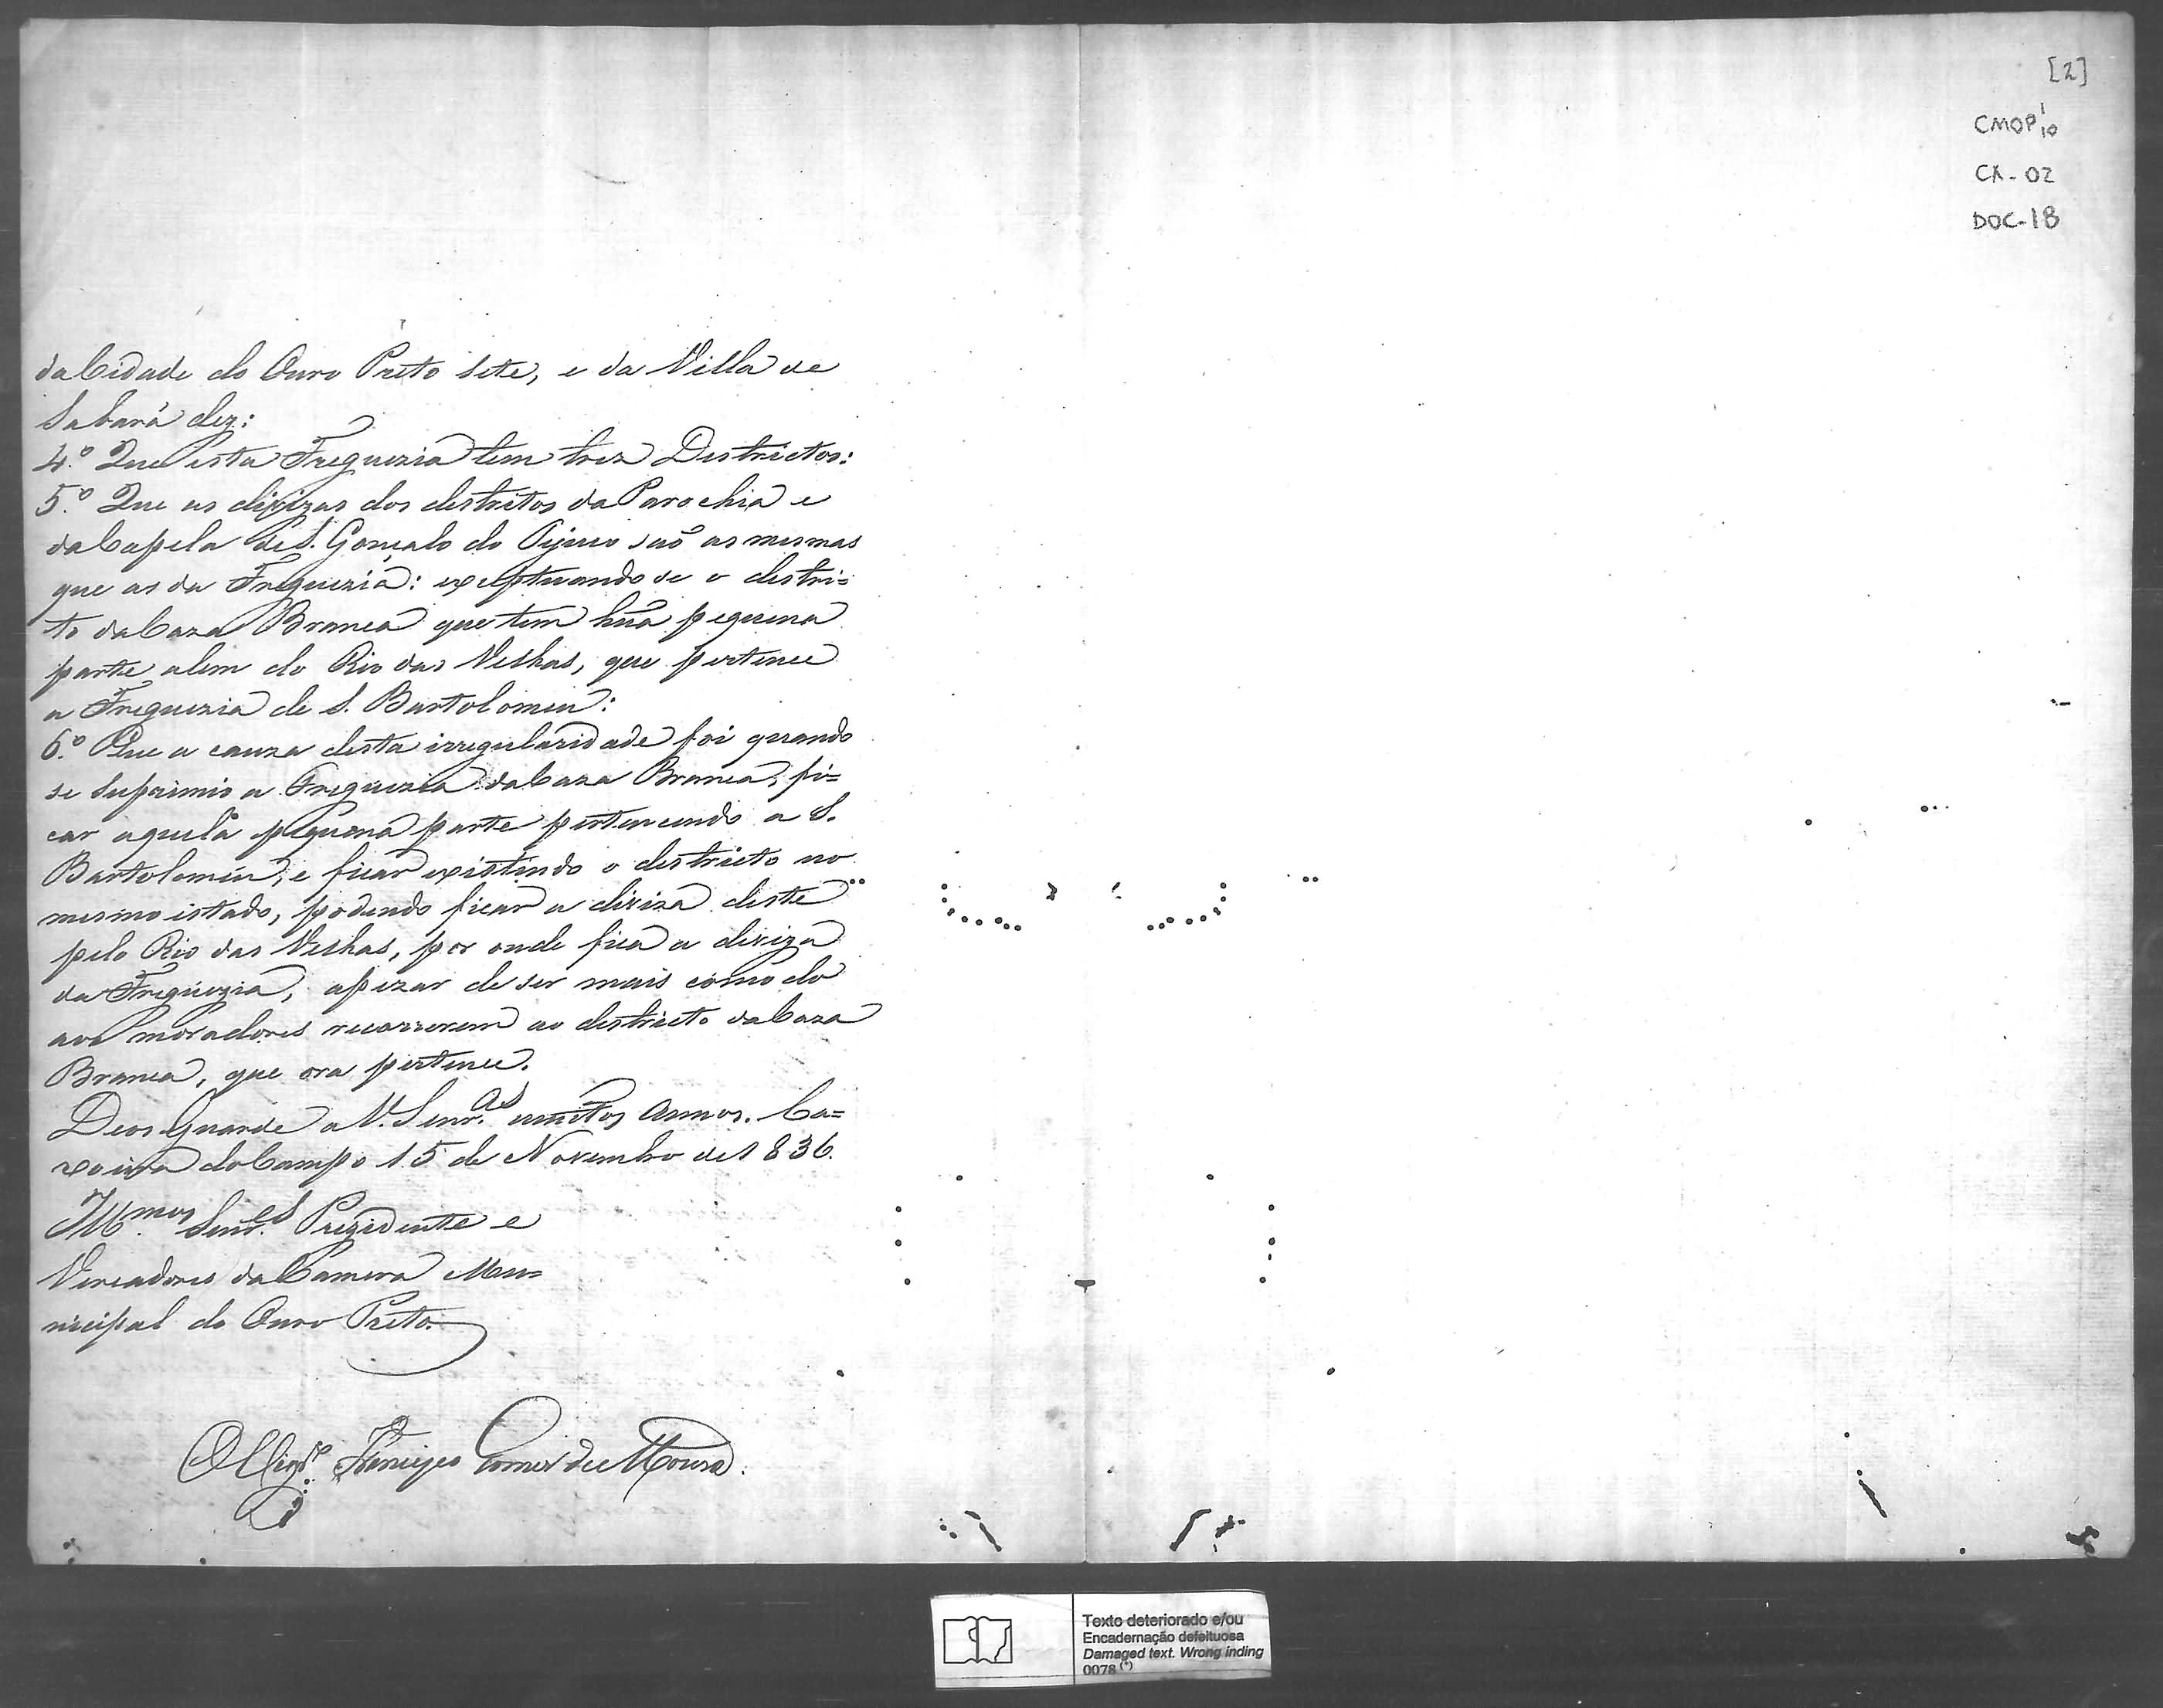 daCidade do Ouro Preto sete, e da Villa de
Sabará dez:
4.º Que esta Freguezia tem trez Destrictos:
5.º Que as divizas dos destritos da Parochia e
daCapela de S. Gonçalo do Tijuco saõ as mesmas
que as da Freguezia: exceptuando se o destri=
to daCaza Branca que tem huã pequena
parte alem do Rio das Velhas, que pertence
a Freguezia de S. Bartolomeu:
6.º Que a cauza desta irregularidade foi quando
se suprimio a Freguezia daCaza Branca, fi=
car aquela pequena parte pertencendo a S.
Bartolomeu, e ficar existindo o destricto no
mesmo estado, podendo ficar a diviza deste
pelo Rio das Velhas, por onde fica a diviza
da Freguezia, apezar de ser mais comodo
aos moradores recorrerem ao destricto daCaza
Branca, que ora pertence.
Deos Guarde a V. Senr.as muitos annos. Ca=
xoeira doCampo 15 de Novembro de 1836.
Illmos. Senr.es Prezidente e
Vereadores daCamera Mu=
nicipal do Ouro Preto.
Gomes de Moura.
[2]
CMOP 1/10
CX-02
DOC-18
Texto deteriorado e/ou
Encadernação defeituosa
Damaged text. Wrong inding
0078 (*)